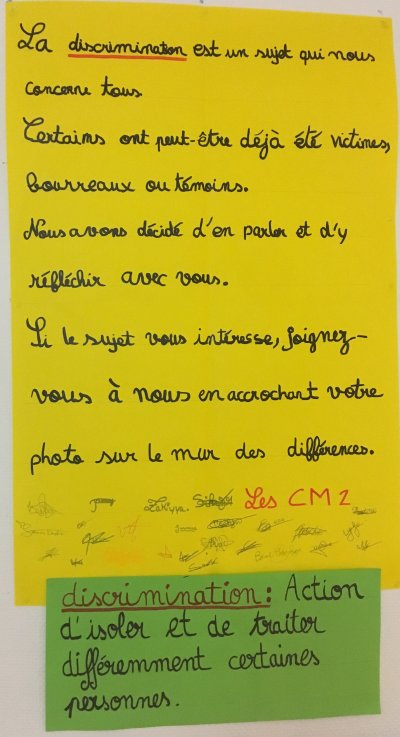 La discrimination est un sujet qui nous
concerne tous
Certains ont peut-être déjà été victimes,
bourreaux ou témoins.
Nous avons décidé d'en parler et d'y
réfléchir avec vous.
Si le sujet vous intéresse, joignez-
vous à nous en accrochant votre
photo sur le mur des différences.
Zakiyya
Les CM2
discrimination : Action
d'isoler et de traiter
différemment certaines
personnes.